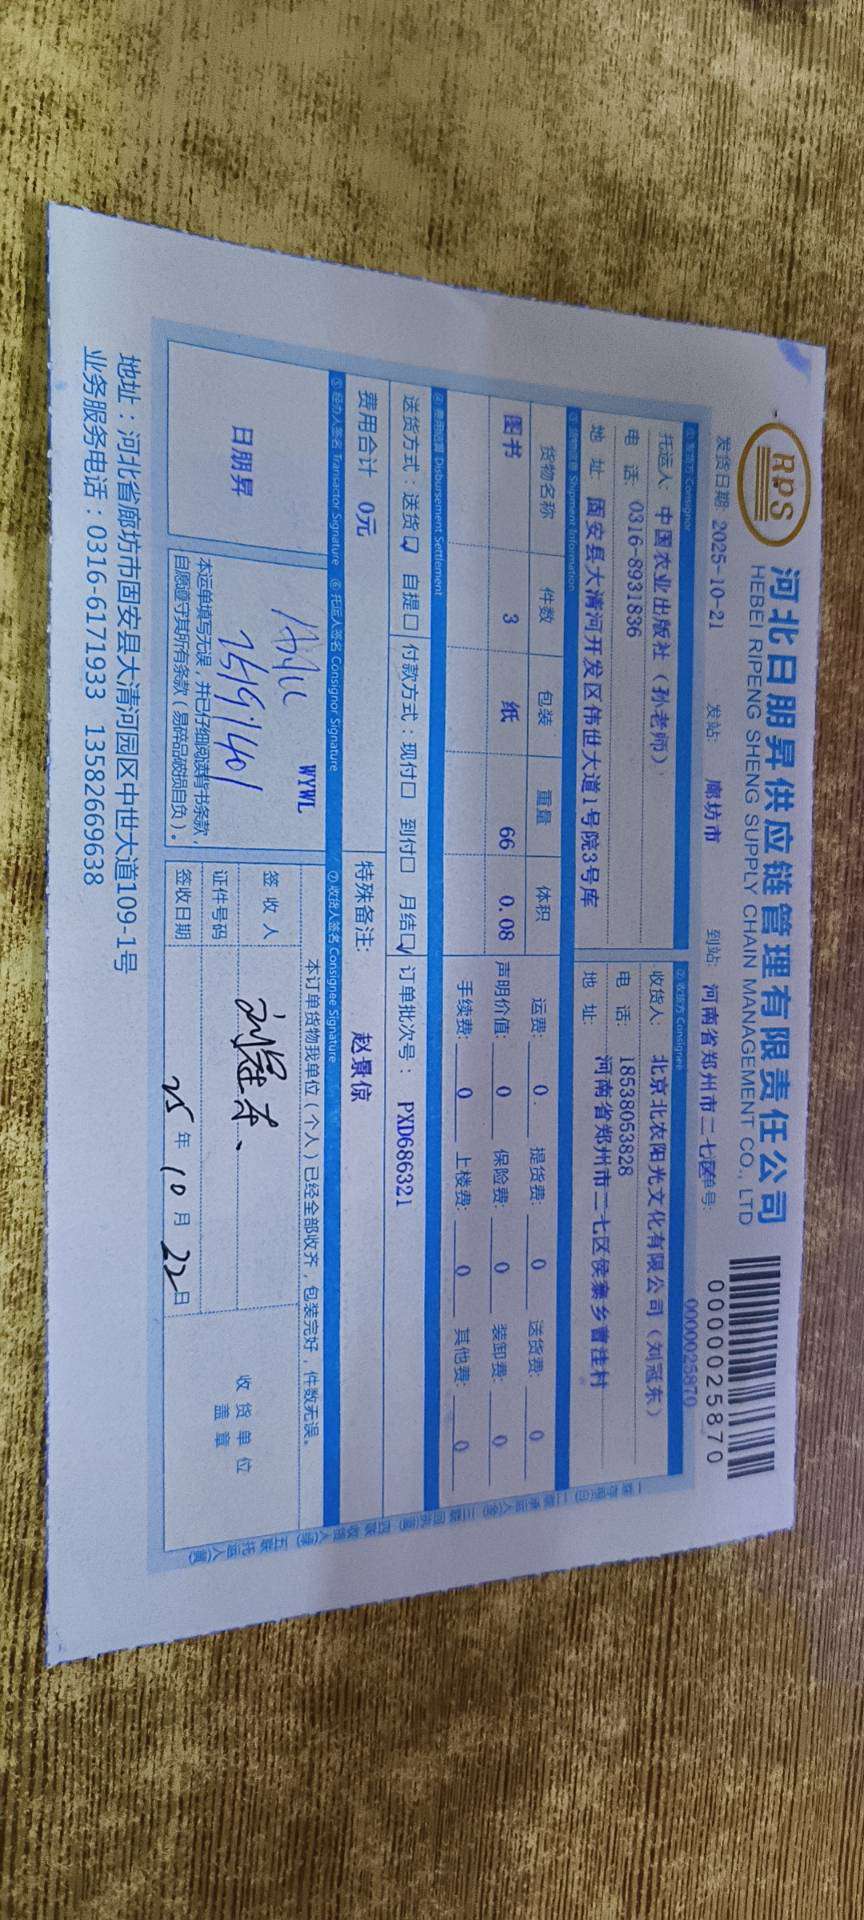 RPS
河北日朋昇供应链管理有限责任公司
HEBEI RIPENG SHENG SUPPLY CHAIN MANAGEMENT CO., LTD
0000025870
发货日期: 2025-10-21 发站: 廊坊市 到站: 河南省郑州市二七区 单号: 0000025870
①发货方 Consignor ②收货方 Consignee
托运人: 中国农业出版社（孙老师） 收货人: 北京北农阳光文化有限公司（刘冠东）
电 话: 0316-8931836 电 话: 18538053828
地 址: 固安县大清河开发区伟世大道1号院3号库 地 址: 河南省郑州市二七区侯寨乡曹洼村
③货物信息 Shipment Information
货物名称 件数 包装 重量 体积 运费: 0 提货费: 0 送货费: 0
图书 3 纸 66 0.08 声明价值: 0 保险费: 0 装卸费: 0
手续费: 0 上楼费: 0 其他费: 0
④费用结算 Disbursement Settlement
送货方式：送货☑ 自提□ 付款方式：现付□ 到付□ 月结☑ 订单批次号： PXD686321
费用合计 0元 特殊备注: 赵景倞
⑤经办人签名 Transactor Signature ⑥托运人签名 Consignor Signature ⑦收货人签名 Consignee Signature
日朋昇
WYWL
本运单填写无误，并已仔细阅读背书条款，
自愿遵守其所有条款（易碎品破损自负）。
本订单货物我单位（个人）已经全部收齐，包装完好，件数无误。
签收人 刘冠东
证件号码
签收日期 25年10月22日
收货单位
盖章
地址：河北省廊坊市固安县大清河园区中世大道109-1号
业务服务电话：0316-6171933 13582669638